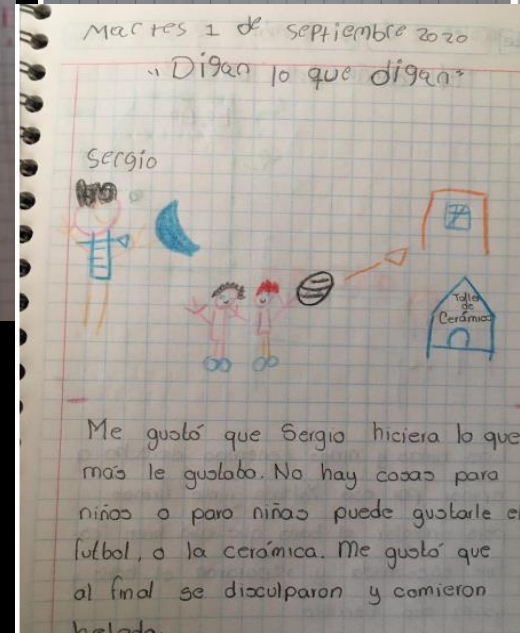 Martes 1 de septiembre 2020
"Digan lo que digan"
Sergio
Taller
de
Cerámica
Me gustó que Sergio hiciera lo que
más le gustaba. No hay cosas para
niños o para niñas puede gustarle el
futbol, o la cerámica. Me gustó que
al final se disculparon y comieron
helado.